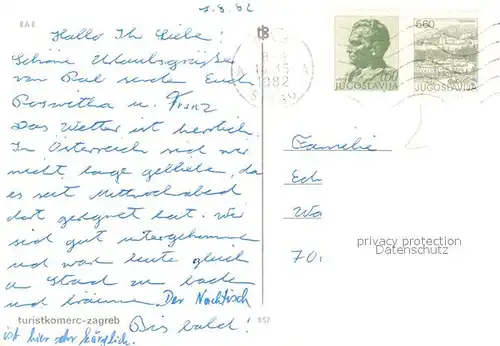 RAB
1.8.82
Hallo Ihr Liebe!
Schöne Urlaubsgrüße
von Rab senden Euch
Roswitha u. Franz
Das Wetter ist herrlich.
In Österreich sind wir
nicht lange geblieben, da
es seit Mittwochabend
dort geregnet hat. Wir
sind gut untergekommen
und war heute gleich
a Strand zu baden
und bräunen. Der Nachtisch
Bis bald!
ist hier sehr kärglich.
turistkomerc-zagreb
857
1982
JUGOSLAVIJA
5.60
JUGOSLAVIJA
Familie
Ech
Wa
70
privacy protection
Datenschutz